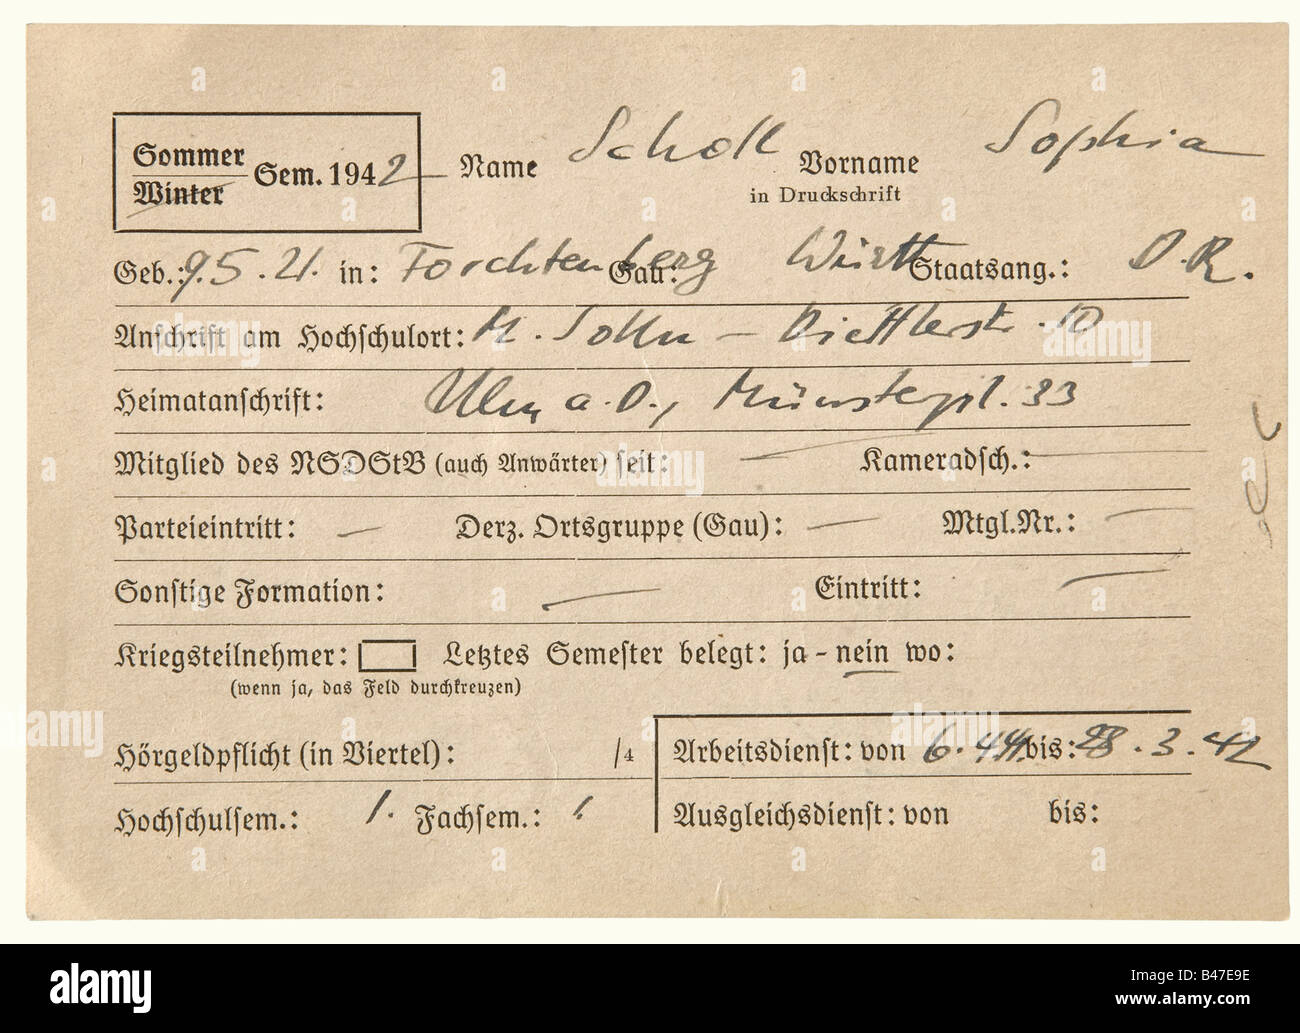 Sommer
Winter Sem. 1942 Name Scholl Vorname Sophia
in Druckschrift
Geb.: 9.5.21. in: Forchtenberg Gau: Württ Staatsang.: D.R.
Anschrift am Hochschulort: M. Solln - Dittlerstr. 10
Heimatanschrift: Ulm a.D., Münsterpl. 33
Mitglied des NSDStB (auch Anwärter) seit: — Kameradsch.: —
Parteieintritt: — Derz. Ortsgruppe (Gau): — Mtgl.Nr.: —
Sonstige Formation: — Eintritt: —
Kriegsteilnehmer: Letztes Semester belegt: ja - nein wo:
(wenn ja, das Feld durchkreuzen)
Hörgeldpflicht (in Viertel): /4 Arbeitsdienst: von 6.4.41. bis: 28.3.42
Hochschulsem.: 1. Fachsem.: 1 Ausgleichsdienst: von bis:
alamy
Image ID: B47E9E
www.alamy.com